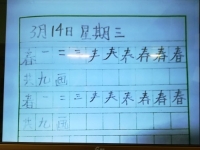 3月14日星期三
春 一 二 三 𡗗 夫 表 春 春 春
共九画
春 一 二 三 𡗗 夫 表 春 春 春
共九画